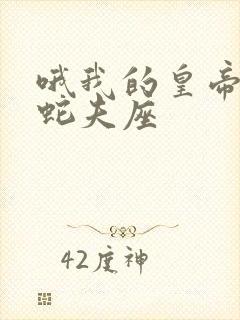 哦我的皇帝
蛇夫座
42度神